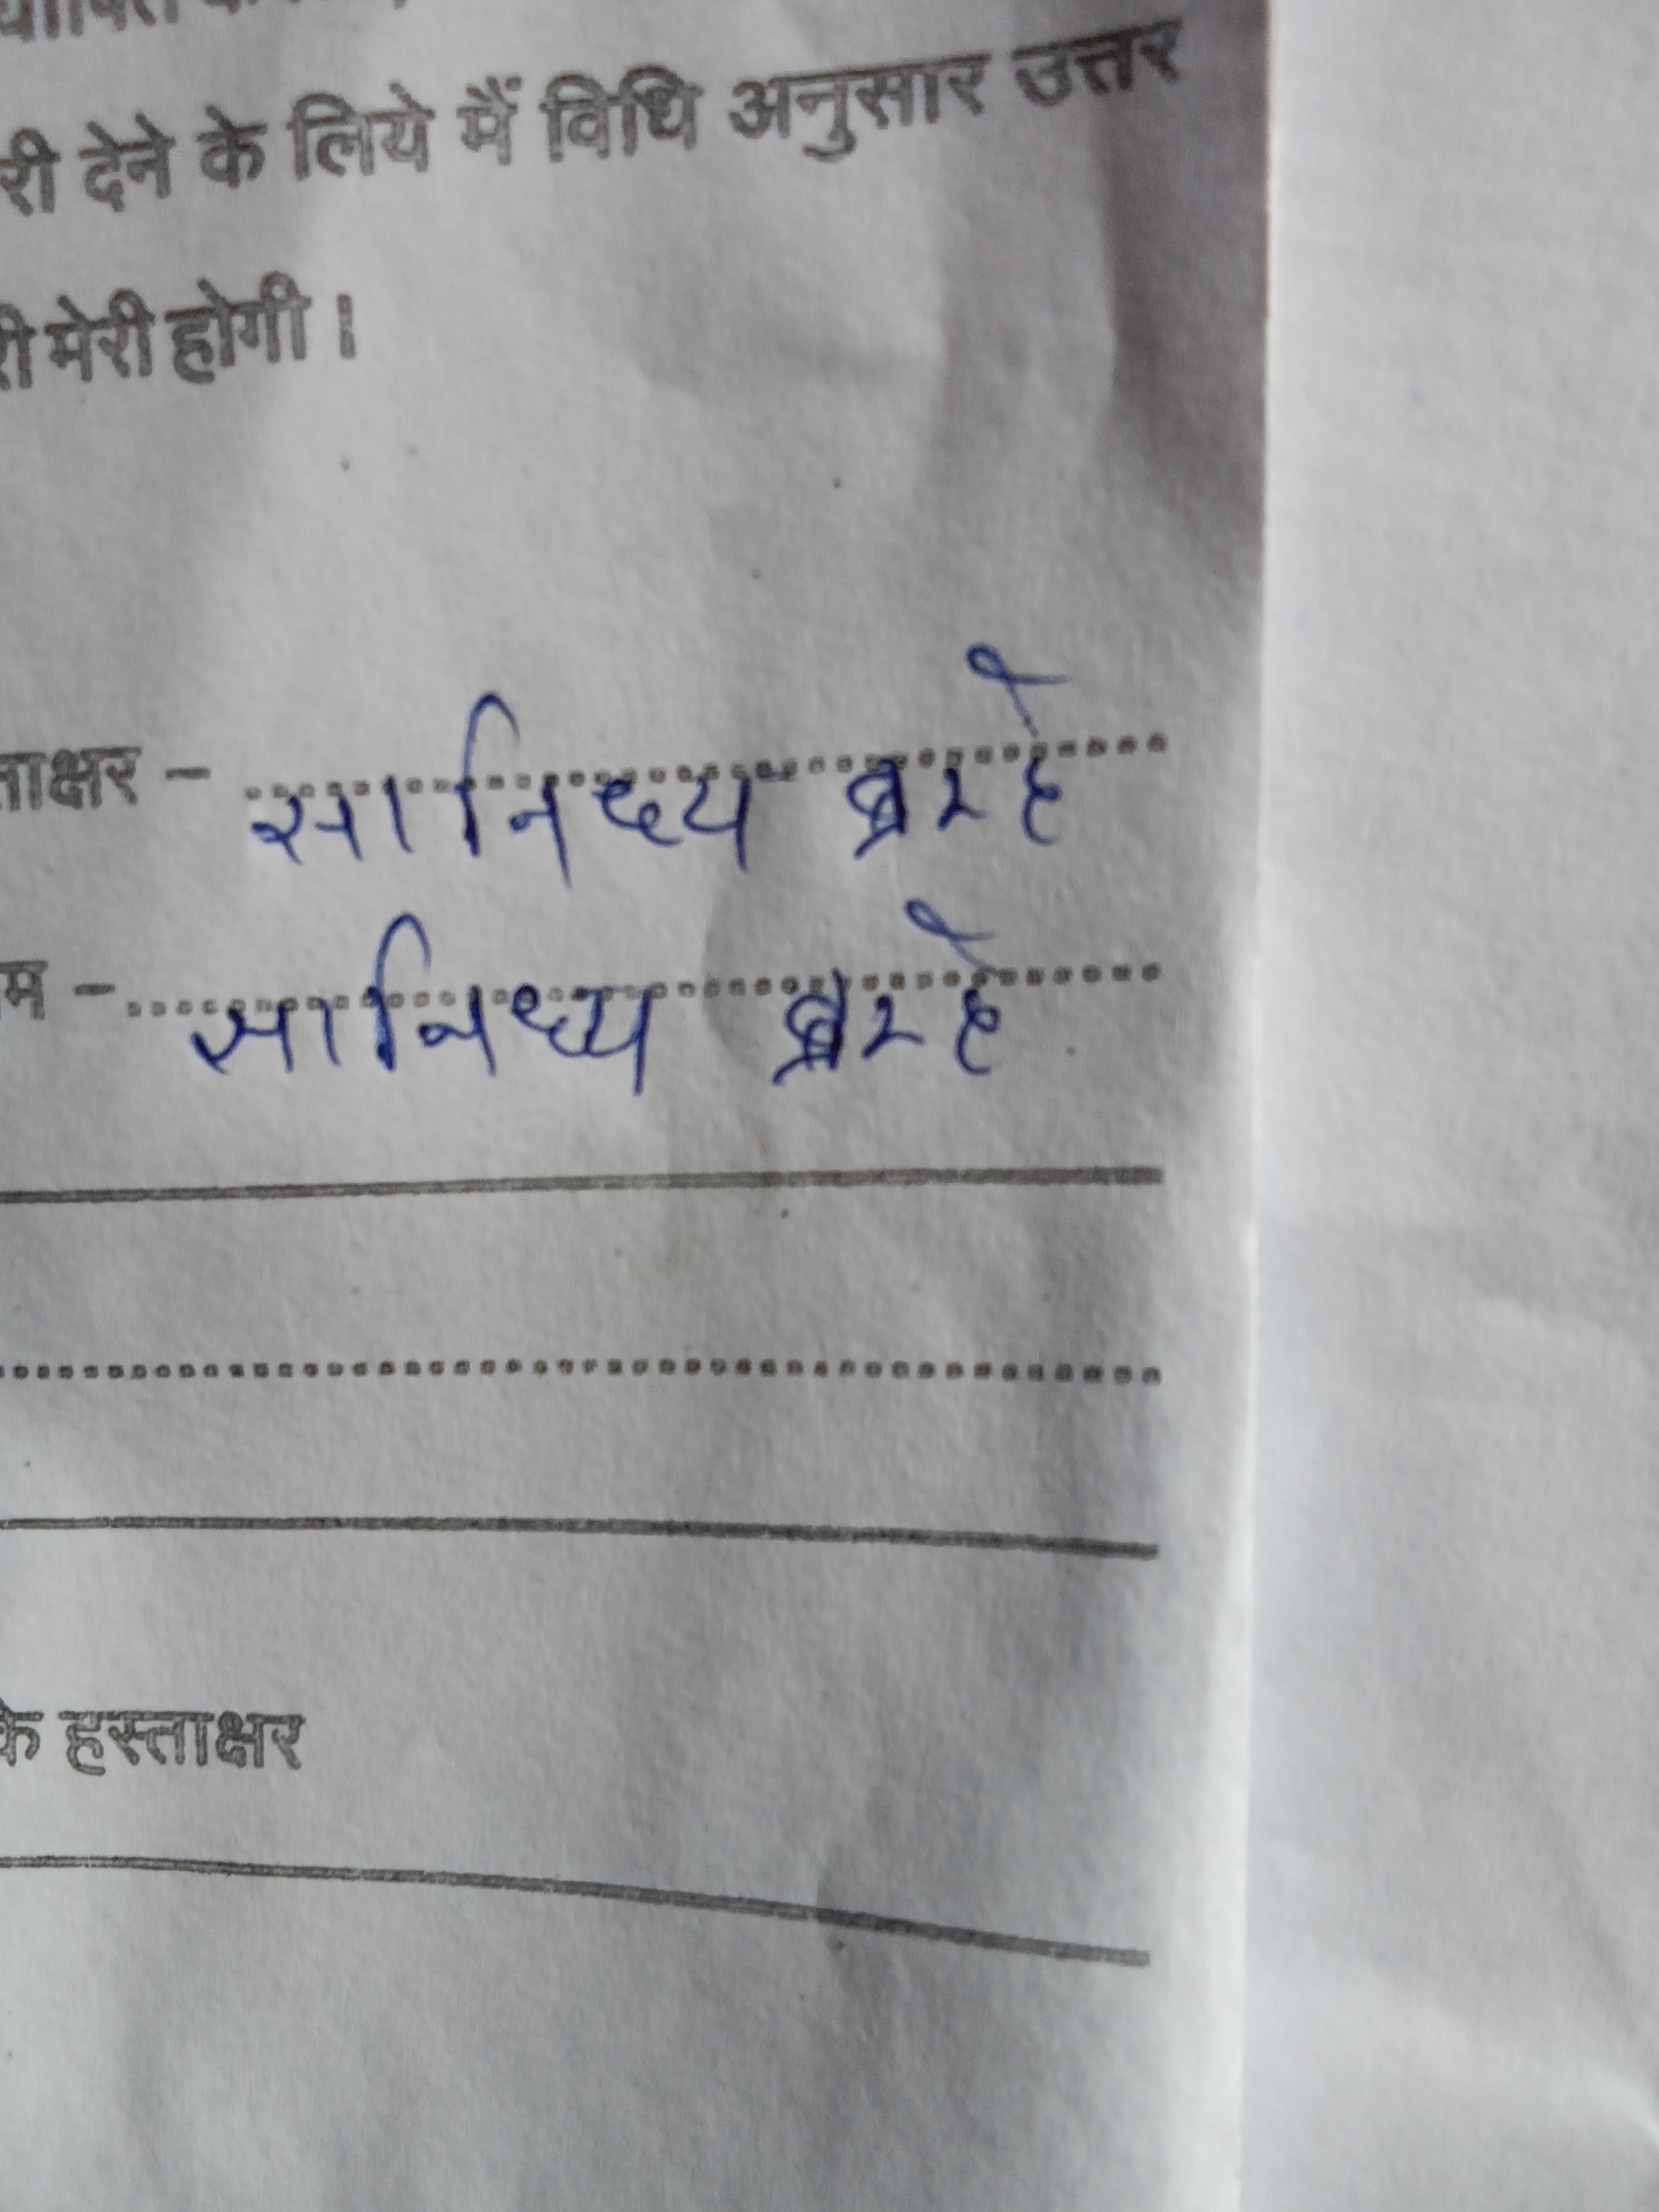 री देने के लिये मैं विधि अनुसार उत्तर
री मेरी होगी ।
ताक्षर - सानिध्य ब्ररहे
म - सानिध्य ब्ररहे
के हस्ताक्षर